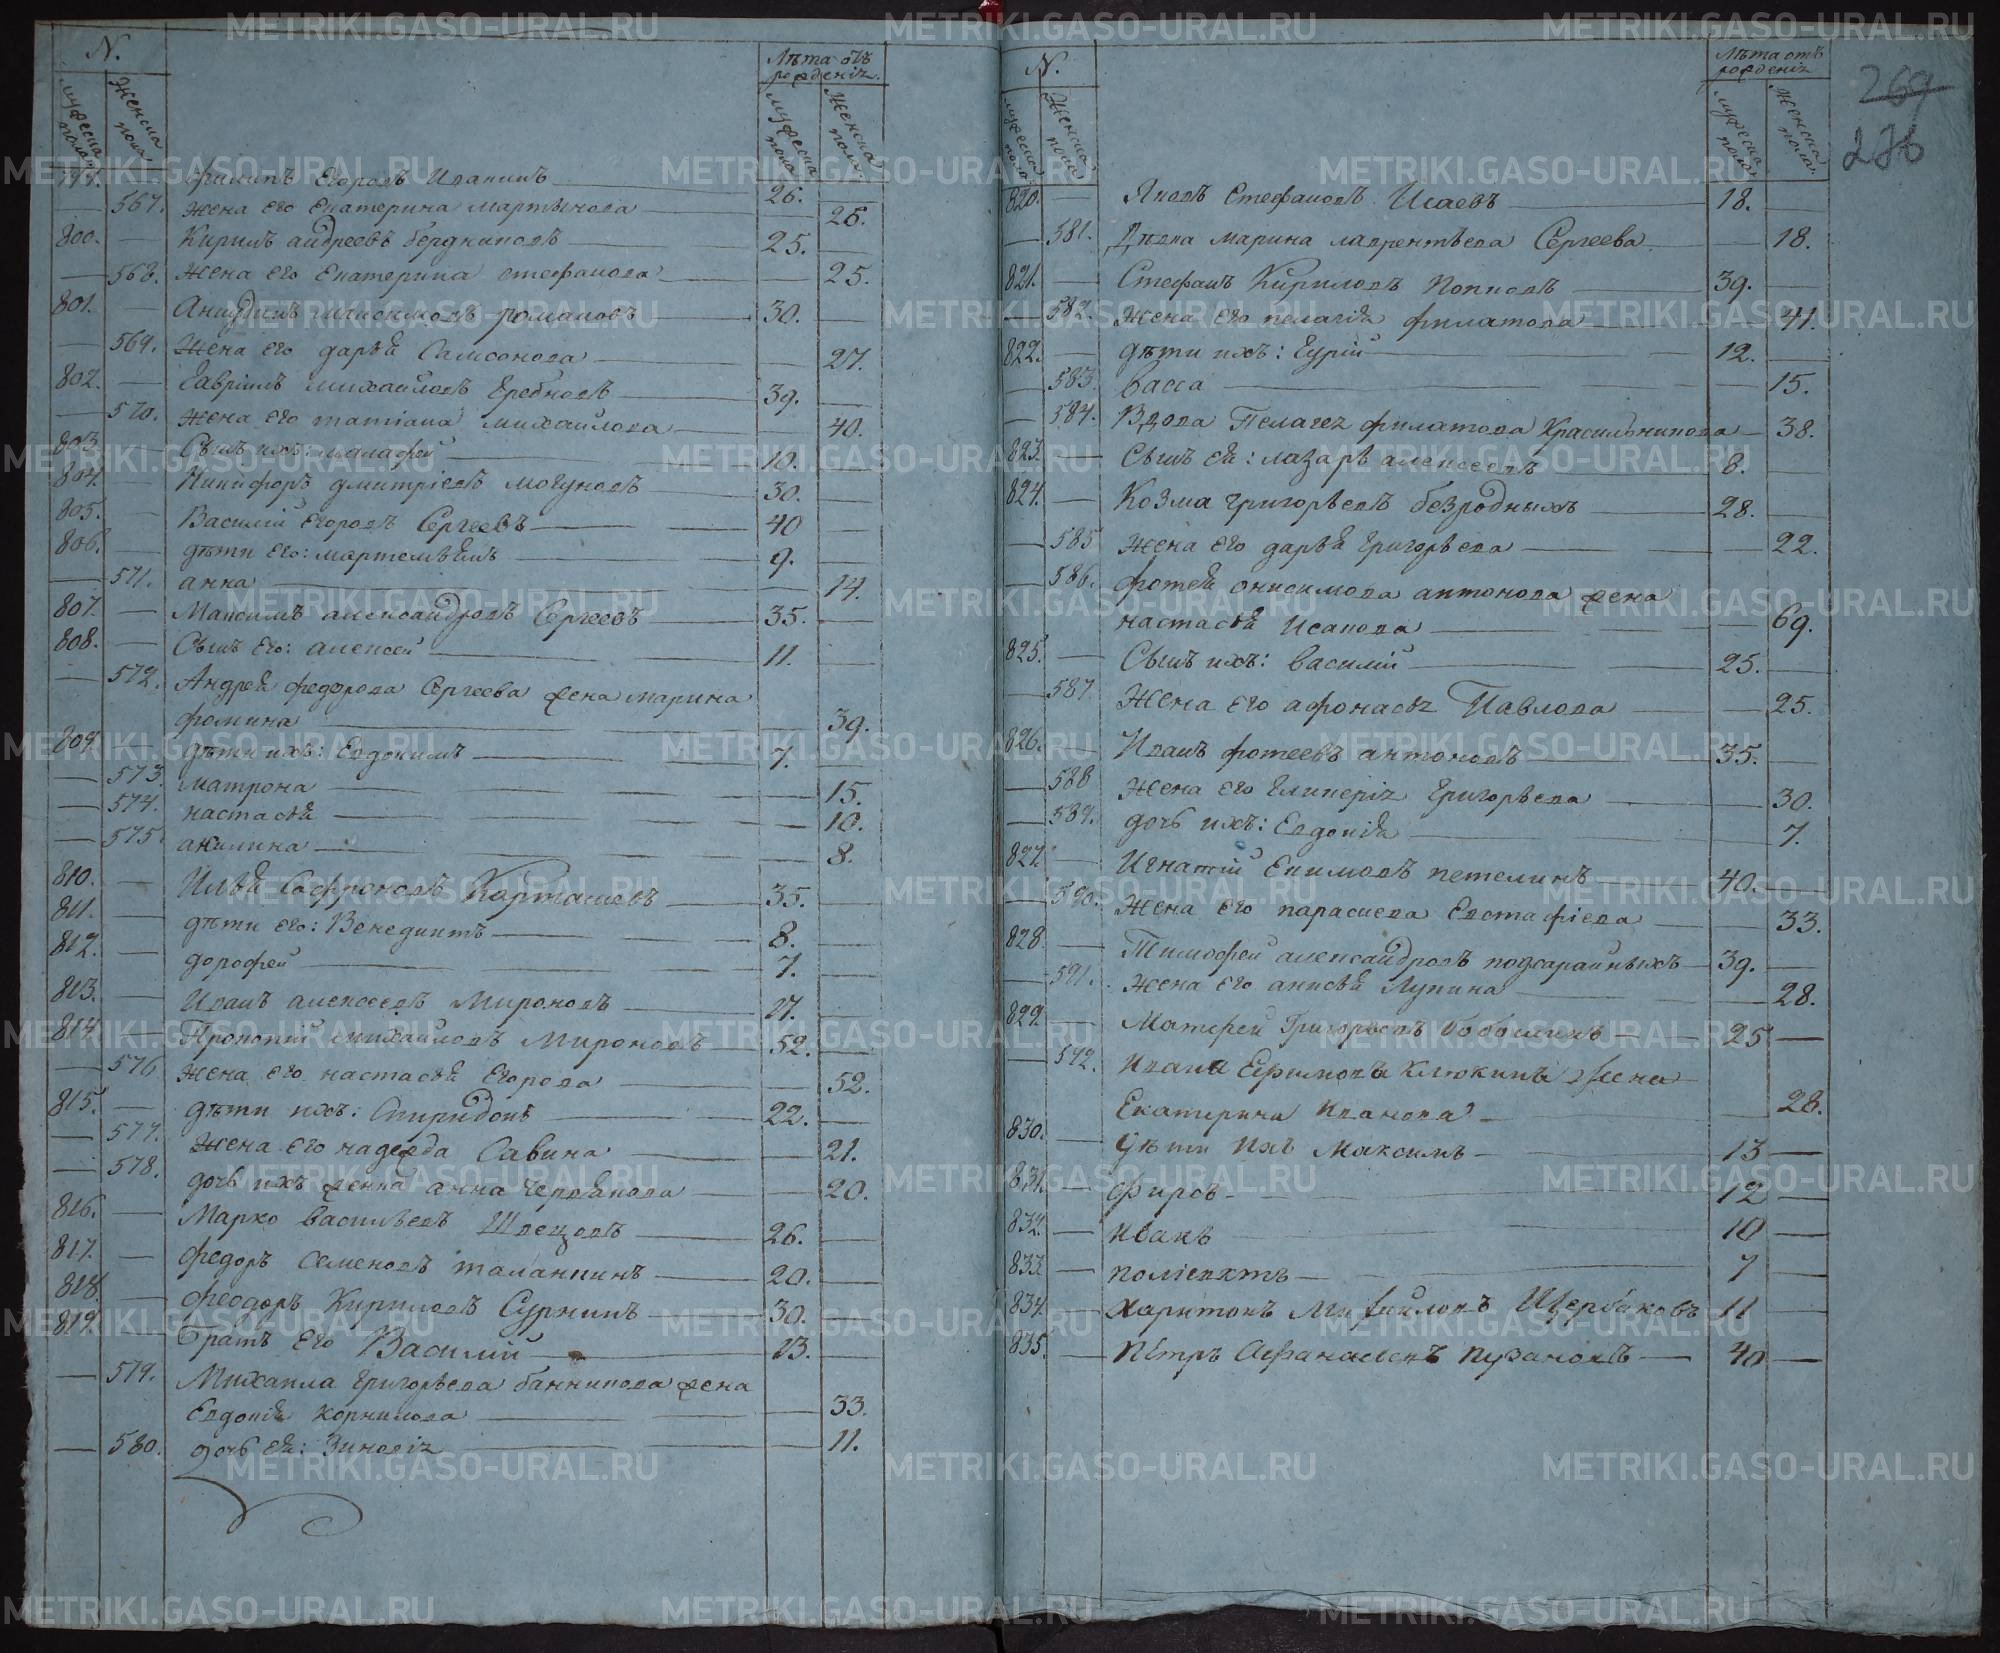 N.
Лѣта отъ рожденіѧ.
мужеска пола
женска пола
мужеска пола
женска пола
799. Филипъ Егоровъ Иванинъ 26.
567. жена его Екатерина мартынова 26.
800. Кирилъ андреевъ бердниковъ 25.
568. жена его Екатерина стефанова 25.
801. Анцудинъ максимовъ романовъ 30.
569. Жена его дарьѧ Самсонова 27.
802. Гавріилъ михайловъ Гребновъ 39.
570. жена его татіана михайлова 40.
803. Сынъ ихъ: малафей 10.
804. Никифоръ дмитріевъ могуновъ 30.
805. Василій Егоровъ Сергеевъ 40
806. дѣти его: мартемьѧнъ 9.
571. анна 14.
807. Максимъ александровъ Сергеевъ 35.
808. Сынъ его: алексей 11.
572. Андреѧ федорова Сергеева жена марина
фомина 39.
809. дѣти ихъ: Евдокимъ 7.
573. матрона 15.
574. настасьѧ 10.
575. акилина 8.
810. Ильѧ Софроновъ Карташевъ 35.
811. дѣти его: Венедиктъ 8.
812. дорофей 7.
813. Иванъ алексеевъ Мироновъ 17.
814. Прокопій михайловъ Мироновъ 52.
576. жена его настасьѧ Егорова 52.
815. дѣти ихъ: Спиридонъ 22.
577. Жена его надежда Савина 21.
578. дочь ихъ женка анна Червѧкова 20.
816. Марко васильевъ Швецовъ 26.
817. федоръ семеновъ таланкинъ 20.
818. феодоръ Кириловъ Сурнинъ 30.
819. братъ его Василій 13.
579. Михаила григорьева банникова жена
Евдокіѧ корнилова 33.
580. дочь еѧ: Зиновіѧ 11.
N.
Лѣта отъ рожденіѧ
мужеска пола
женска пола
мужеска пола
женска пола
269
276
820. Яковъ Стефановъ Исаевъ 18.
581. Дѣвка марина лаврентьева Сергеева 18.
821. Стефанъ Кириловъ Поповъ 39.
582. жена его пелагіѧ филатова 41.
822. дѣти ихъ: Гурій 12.
583. васса 15.
584. Вдова Пелагеѧ филатова Красильникова 38.
823. Сынъ еѧ: лазарь алексеевъ 8.
824. Козма григорьевъ безродныхъ 28.
585 жена его дарьѧ григорьева 22.
586. фотеѧ онисимова антонова жена
настасьѧ Исакова 69.
825. Сынъ ихъ: василій 25.
587. Жена его афонасьѧ Павлова 25.
826. Иванъ фотеевъ антоновъ 35.
588 жена его Гликеріѧ григорьева 30.
589. дочь ихъ: Евдокіѧ 7.
827. Игнатій Екимовъ петелинъ 40.
590. жена его параскева Евстафіева 33.
828 Тимофей александровъ подсарайныхъ 39.
591. жена его анисьѧ Лупина 28.
829. Матфей Григорьевъ Бобошинъ 25
592. Ивана Ефимова Клюкина жена
Екатерина Иванова 28.
830. Дѣти ихъ Максимъ 13
831. Фирсъ 12
832. Иванъ 10
833 поліевктъ 7
834. харитонъ Михайловъ Щербаковъ 11
835. Петръ Афанасьевъ Пузановъ 40
METRIKI.GASO-URAL.RU